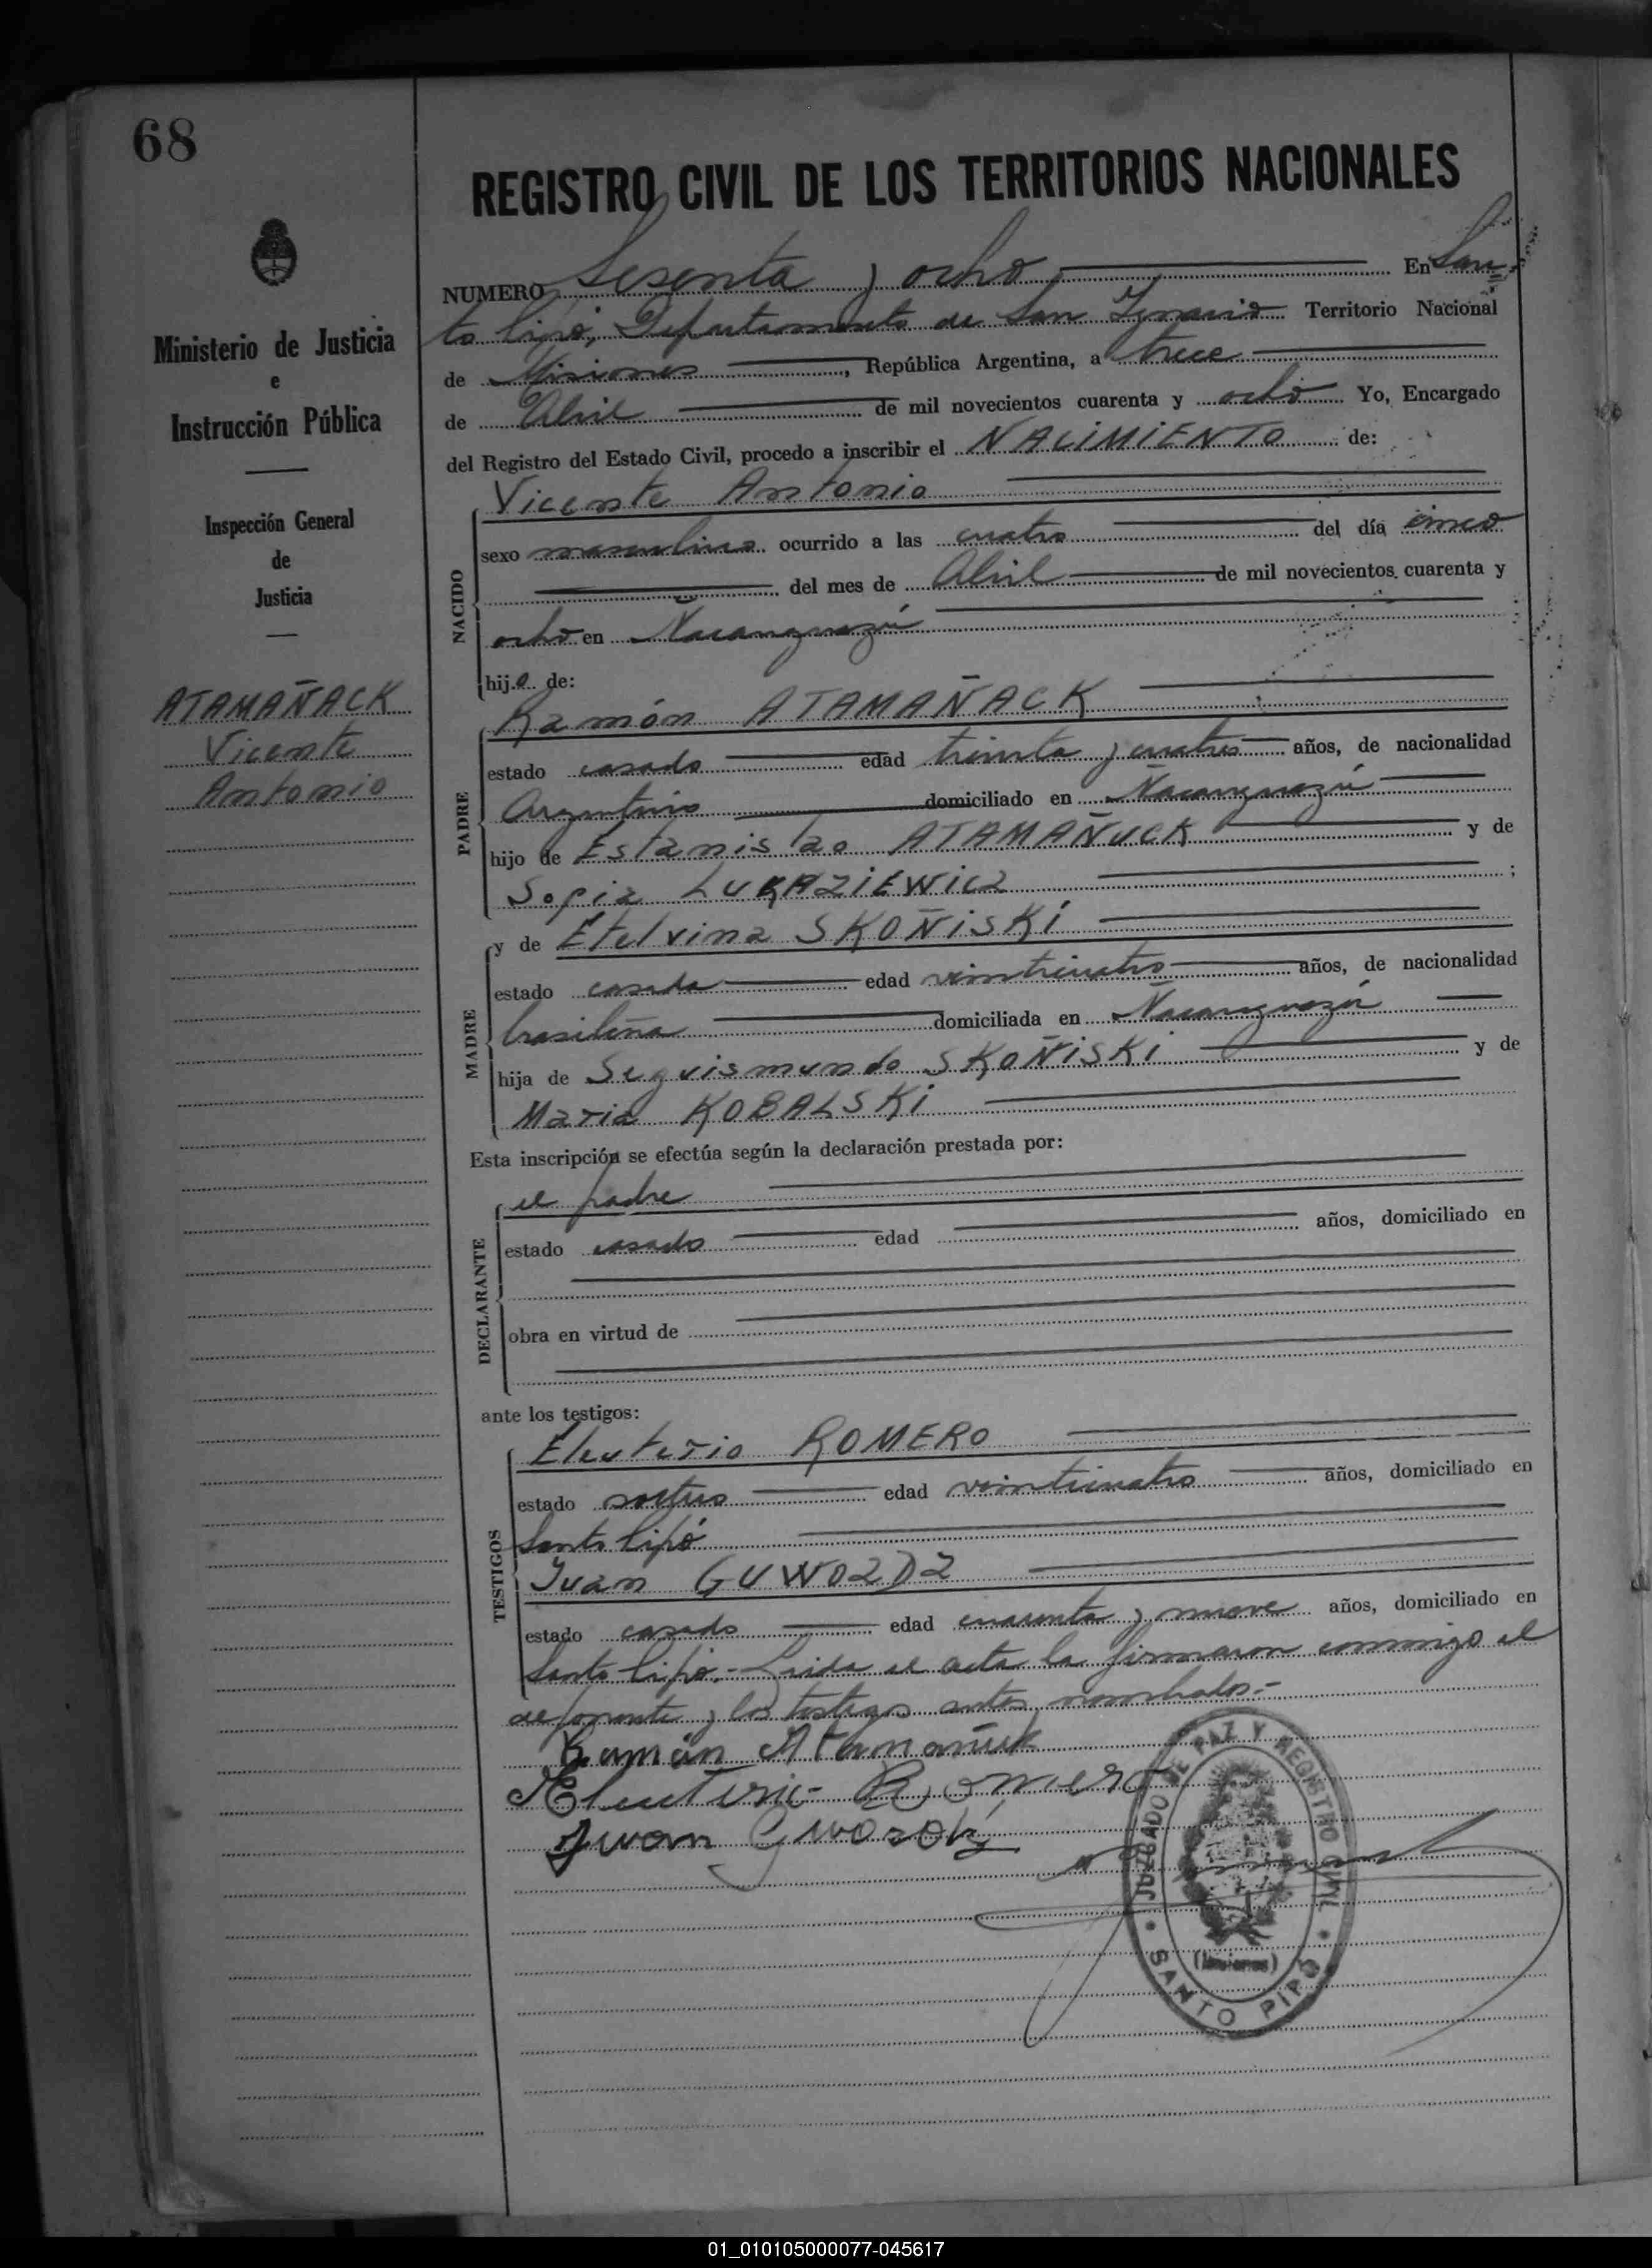 68
REGISTRO CIVIL DE LOS TERRITORIOS NACIONALES
NUMERO Sesenta y ocho En San=
to Pipó, Departamento de San Ignacio Territorio Nacional
de Misiones, República Argentina, a trece
de Abril de mil novecientos cuarenta y ocho Yo, Encargado
del Registro del Estado Civil, procedo a inscribir el NACIMIENTO de:
Ministerio de Justicia
e
Instrucción Pública
Inspección General
de
Justicia
ATAMAÑACK
Vicente
Antonio
NACIDO
Vicente Antonio
sexo masculino ocurrido a las cuatro del día cinco
del mes de Abril de mil novecientos cuarenta y
ocho en Ñacanguazú
hijo de:
PADRE
Ramón ATAMAÑACK
estado casado edad treinta y cuatro años, de nacionalidad
Argentino domiciliado en Ñacanguazú
hijo de Estanislao ATAMAÑUCK y de
Sofia LUKAZIEWICZ ;
MADRE
y de Etelvina SKOÑISKI
estado casada edad veinticuatro años, de nacionalidad
brasileña domiciliada en Ñacanguazú
hija de Seguismundo SKOÑISKI y de
Maria KOBALSKI
Esta inscripción se efectúa según la declaración prestada por:
DECLARANTE
el padre
estado casado edad años, domiciliado en
obra en virtud de
ante los testigos:
TESTIGOS
Eleuterio ROMERO
estado soltero edad veinticuatro años, domiciliado en
Santo Pipó
Juan GUWOZDZ
estado casado edad cuarenta y nueve años, domiciliado en
Santo Pipó.- Leida el acta la firmaron conmigo el
deponente y los testigos antes nombrados.-
Ramón Atamañuk
Eleuterio Romero
Juan Gwozdz
JUZGADO DE PAZ Y REGISTRO CIVIL
(Misiones)
SANTO PIPÓ
01_010105000077-045617